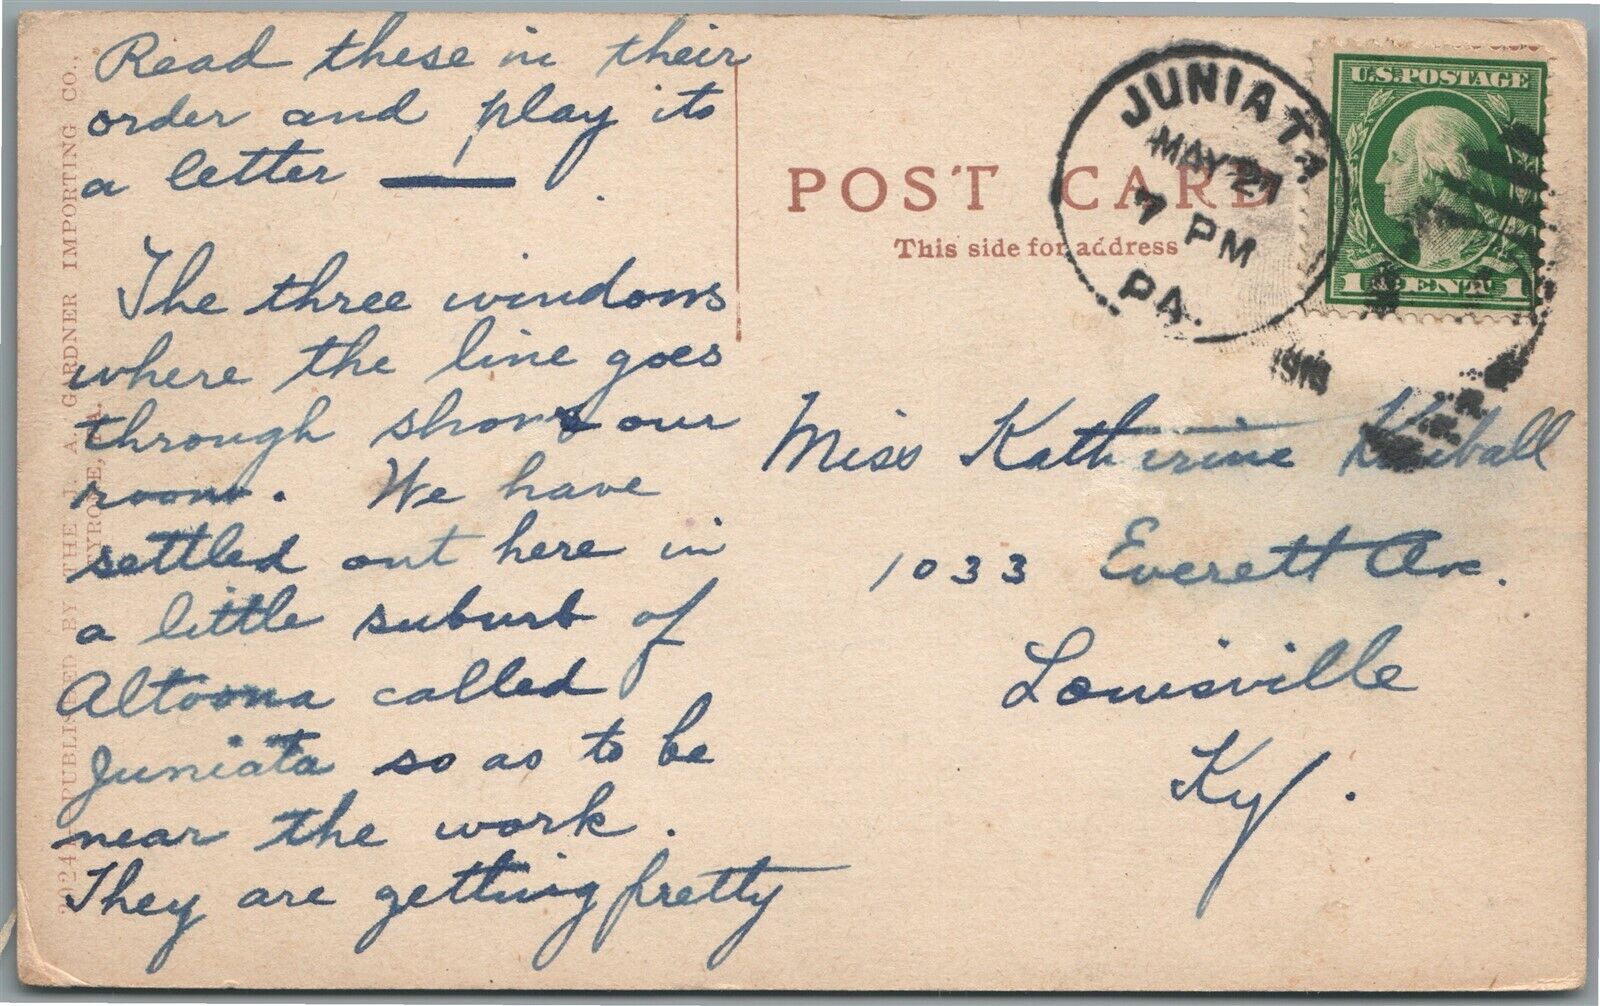 Read these in their
order and play its
a letter —.
The three windows
where the line goes
through shows our
room. We have
settled out here in
a little suburb of
Altoona called
Juniata so as to be
near the work.
They are getting pretty
POST CARD
This side for address
JUNIATA
MAY 27
7 PM
PA.
U.S. POSTAGE
1 CENT 1
Miss Katherine Kimball
1033 Everett Ave.
Louisville
Ky.
PUBLISHED BY THE J. A. GARDNER IMPORTING CO.,
TYRONE, PA.